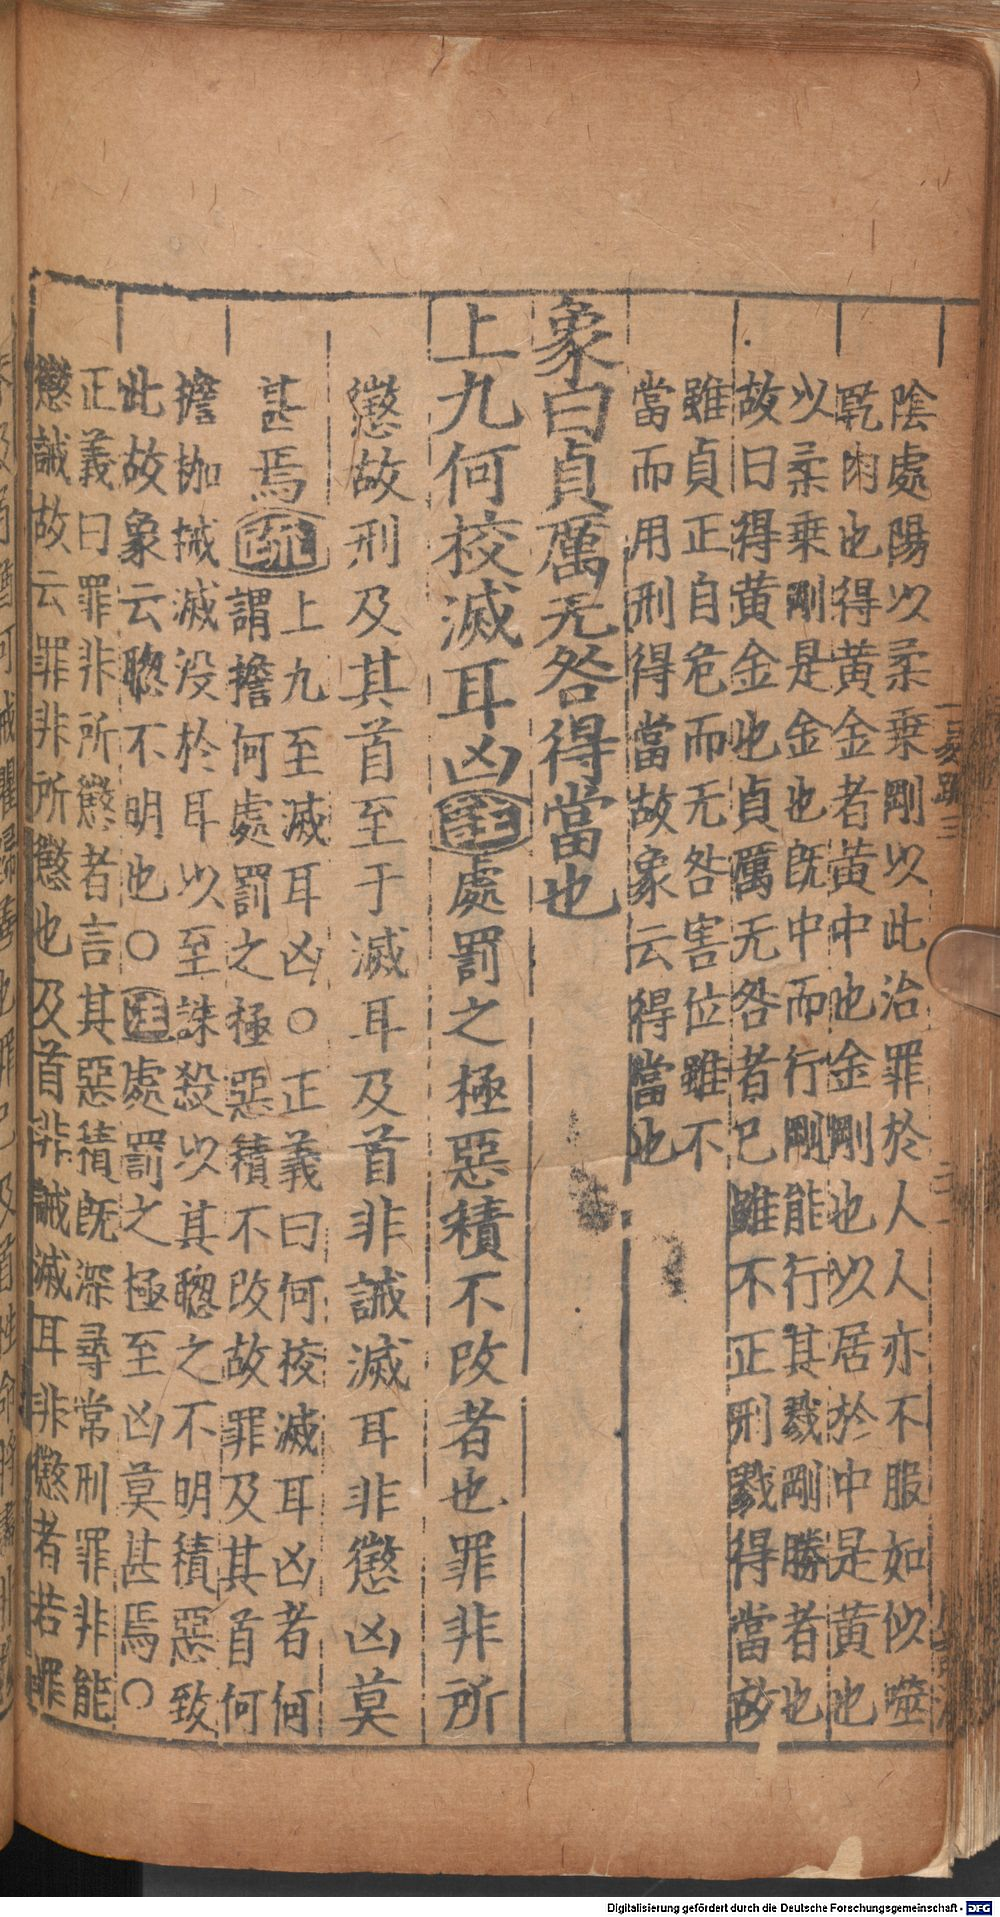 陰處陽以柔乗剛以此治罪於人人亦不服如似噬
乾肉也得黄金者黄中也金剛也以居於中是黄也
以柔乗剛是金也旣中而行剛能行其戮剛勝者也
故曰得黄金也貞厲无咎者巳雖不正刑戮得當故
雖貞正自危而无咎害位雖不
當而用刑得當故象云得當也
象曰貞厲无咎得當也
上九何校滅耳凶注處罰之極惡積不改者也罪非所
懲故刑及其首至于滅耳及首非誡滅耳非懲凶莫
甚焉疏
上九至滅耳凶○正義曰何校滅耳凶者何
謂擔何處罰之極惡積不改故罪及其首何
擔枷械滅没於耳以至誅殺以其聦之不明積惡致
此故象云聦不明也○注處罰之極至凶莫甚焉○
正義曰罪非所懲者言其惡積旣深尋常刑罪非能
懲誡故云罪非所懲也及首非誡滅耳非懲者若罪
易疏三
Digitalisierung gefördert durch die Deutsche Forschungsgemeinschaft - DFG